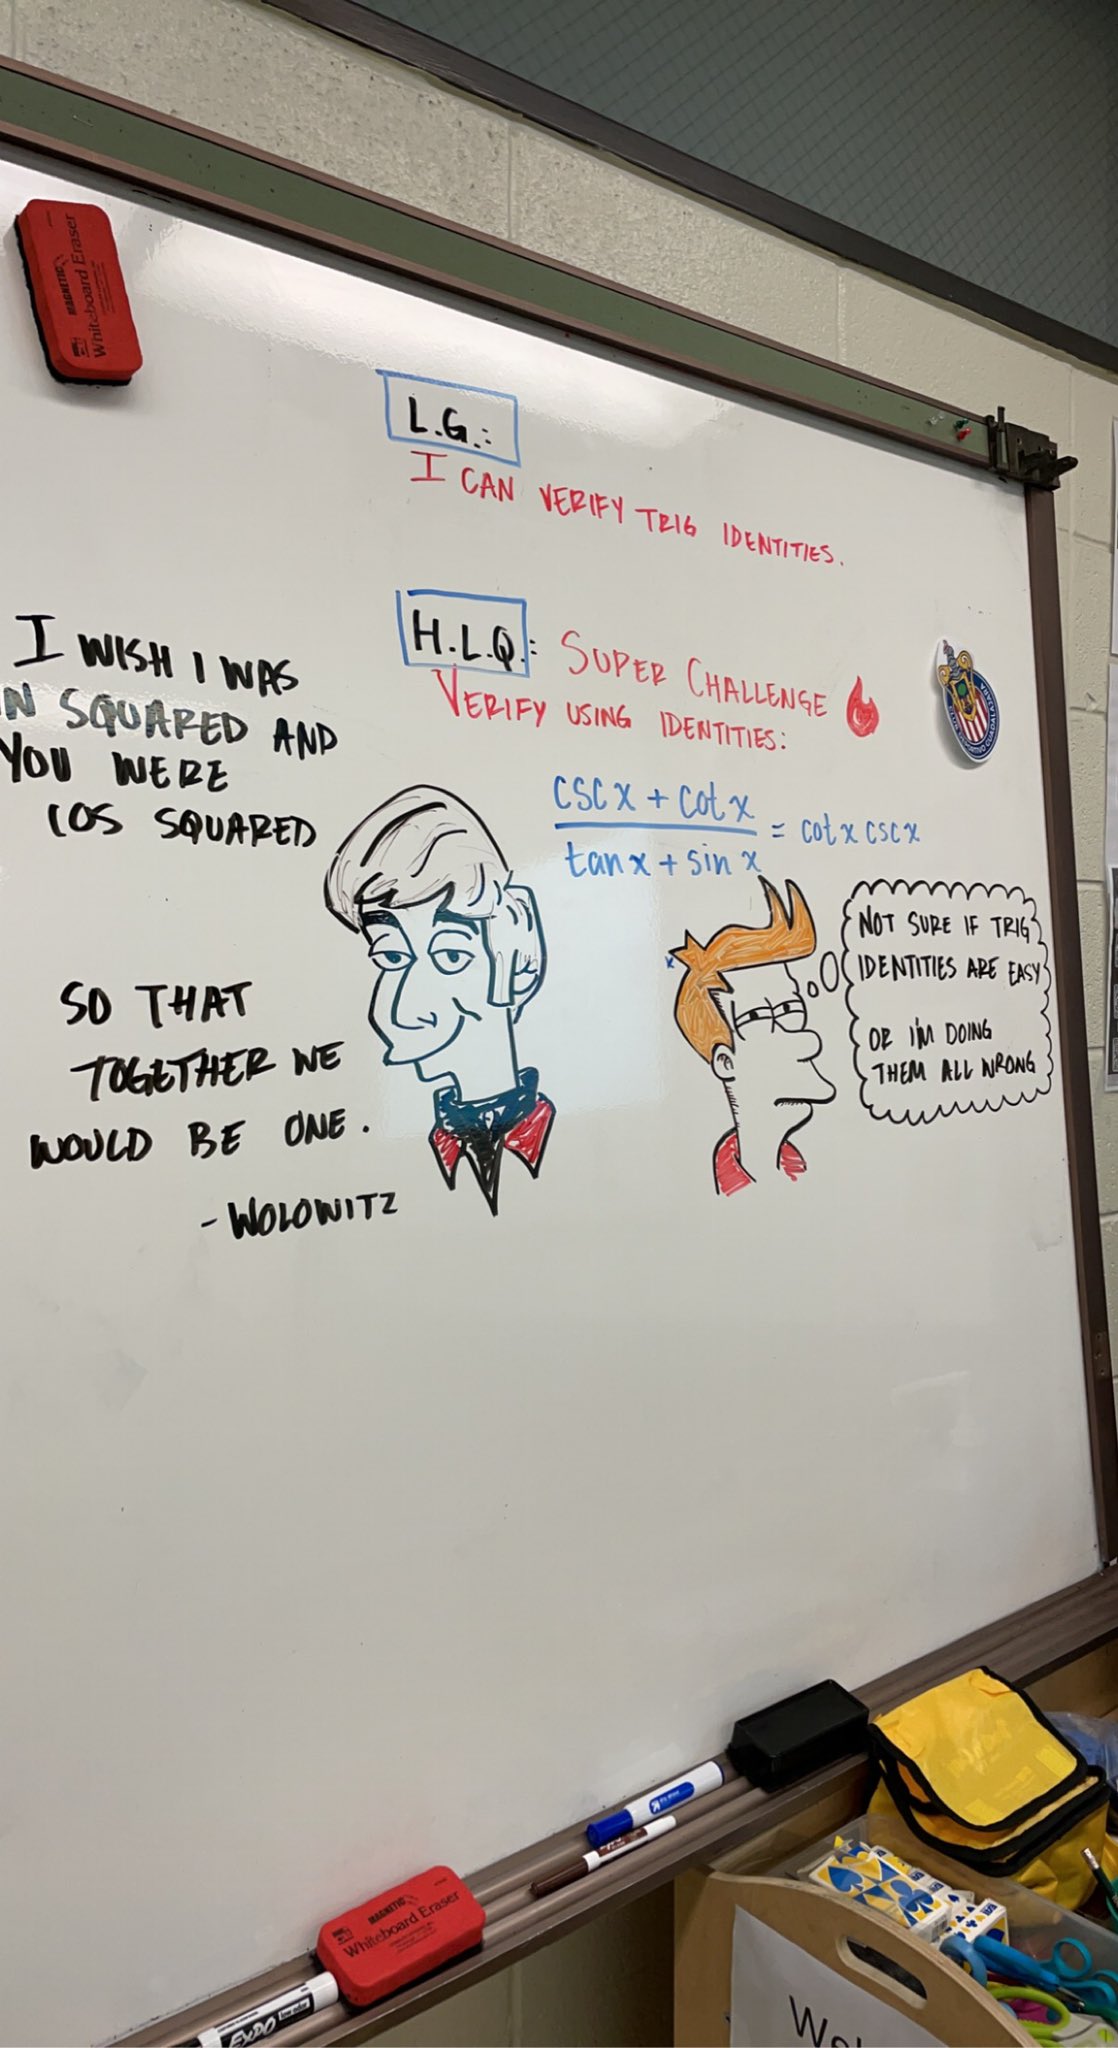 MAGNETIC
Whiteboard Eraser
L.G.:
I CAN VERIFY TRIG IDENTITIES.
H.L.Q.: SUPER CHALLENGE
VERIFY USING IDENTITIES:
csc x + cot x
tan x + sin x
= cot x csc x
I WISH I WAS
IN SQUARED AND
YOU WERE
COS SQUARED
SO THAT
TOGETHER WE
WOULD BE ONE.
- WOLOWITZ
NOT SURE IF TRIG
IDENTITIES ARE EASY
OR I'M DOING
THEM ALL WRONG
MAGNETIC
Whiteboard Eraser
EXPO
low odor